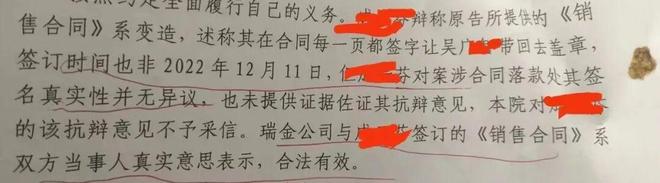 按照约定全面履行自己的义务。芬辩称原告所提供的《销
售合同》系变造，述称其在合同每一页都签字让吴广带回去盖章，
签订时间也非 2022 年 12 月 11 日，但芬对案涉合同落款处其签
名真实性并无异议，也未提供证据佐证其抗辩意见，本院对
的该抗辩意见不予采信。瑞金公司与签订的《销售合同》系
双方当事人真实意思表示，合法有效。